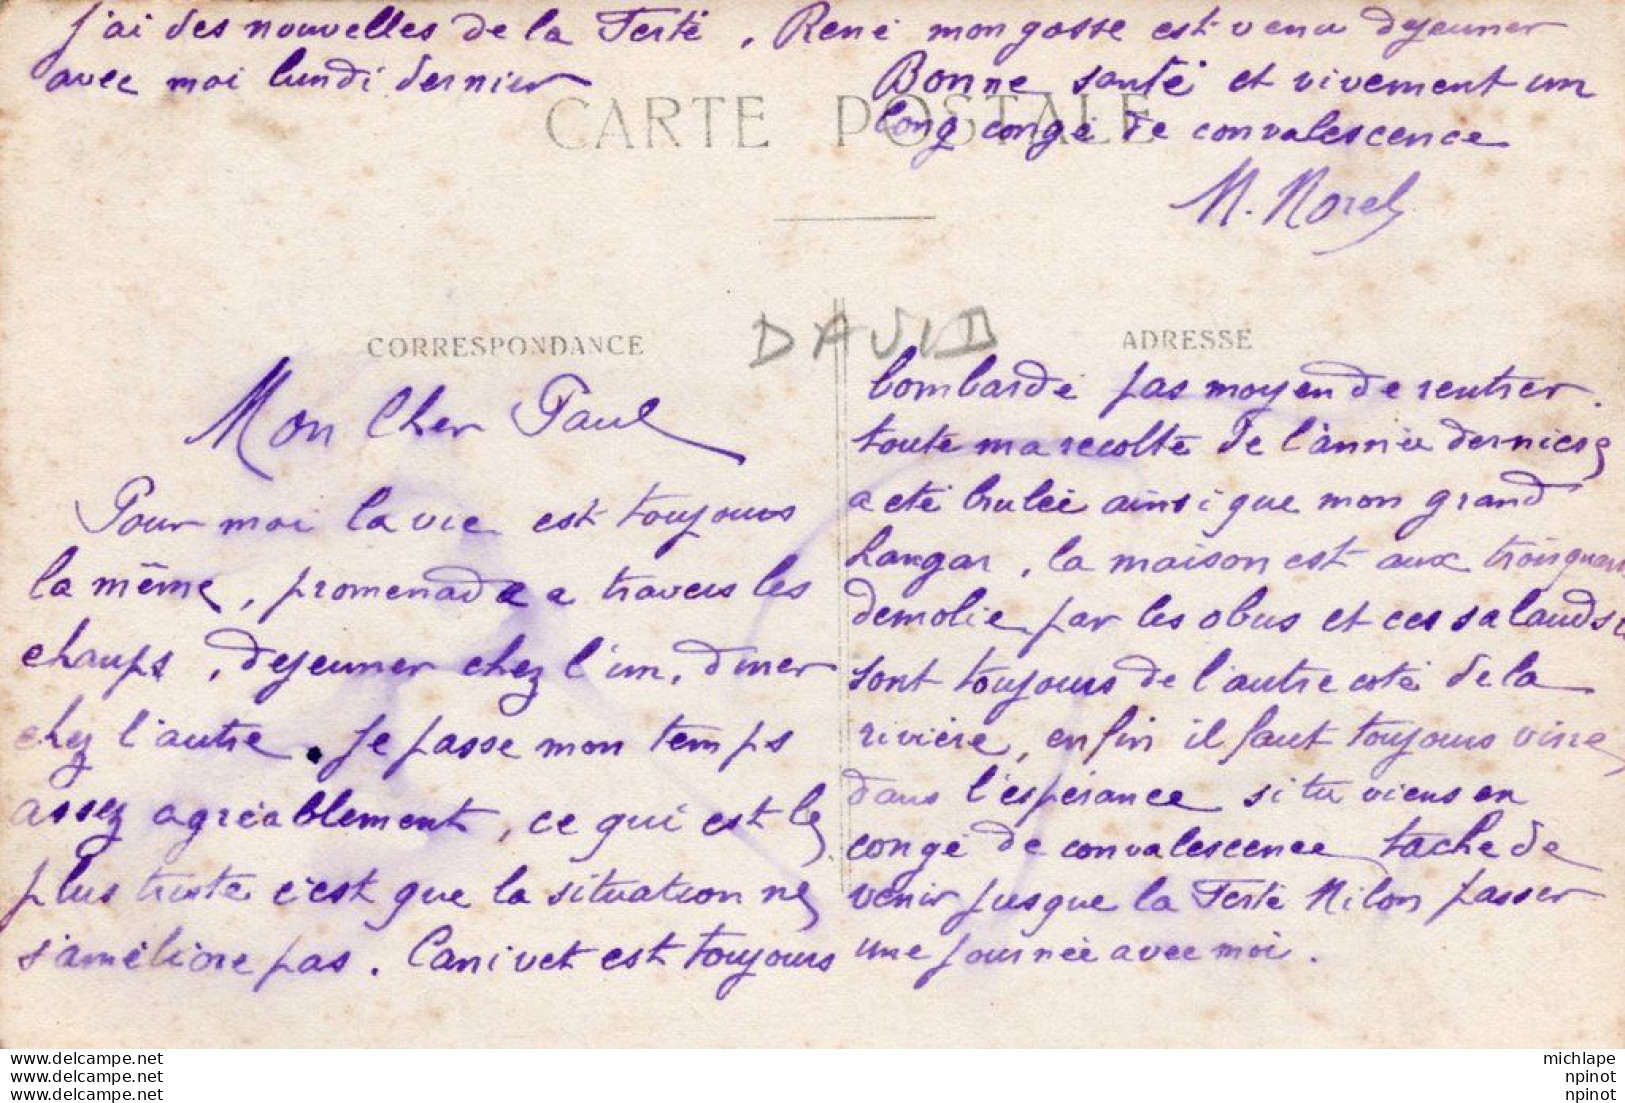 j'ai des nouvelles de la Ferté, René mon gosse est venu dejeuner
avec moi lundi dernier
Bonne santé et vivement un
long congé de convalescence
M. Morel
CARTE POSTALE
CORRESPONDANCE
DAVID
ADRESSE
Mon Cher Paul
Pour moi la vie est toujours
la même, promenade a travers les
champs, dejeuner chez l'un, diner
chez l'autre. Je passe mon temps
assez agréablement, ce qui est le
plus triste c'est que la situation ne
s'améliore pas. Canivet est toujours
bombardé pas moyen de rentrer.
toute ma recolte de l'année derniere
a eté brulée ainsi que mon grand
hangar, la maison est aux trois quarts
demolie par les obus et ces salauds là
sont toujours de l'autre coté de la
riviére, enfin il faut toujours vivre
dans l'espérance si tu viens en
congé de convalescence tache de
venir jusque la Ferté Milon passer
une journée avec moi.
www.delcampe.net
www.delcampe.net
www.delcampe.net
michlape
npinot
npinot